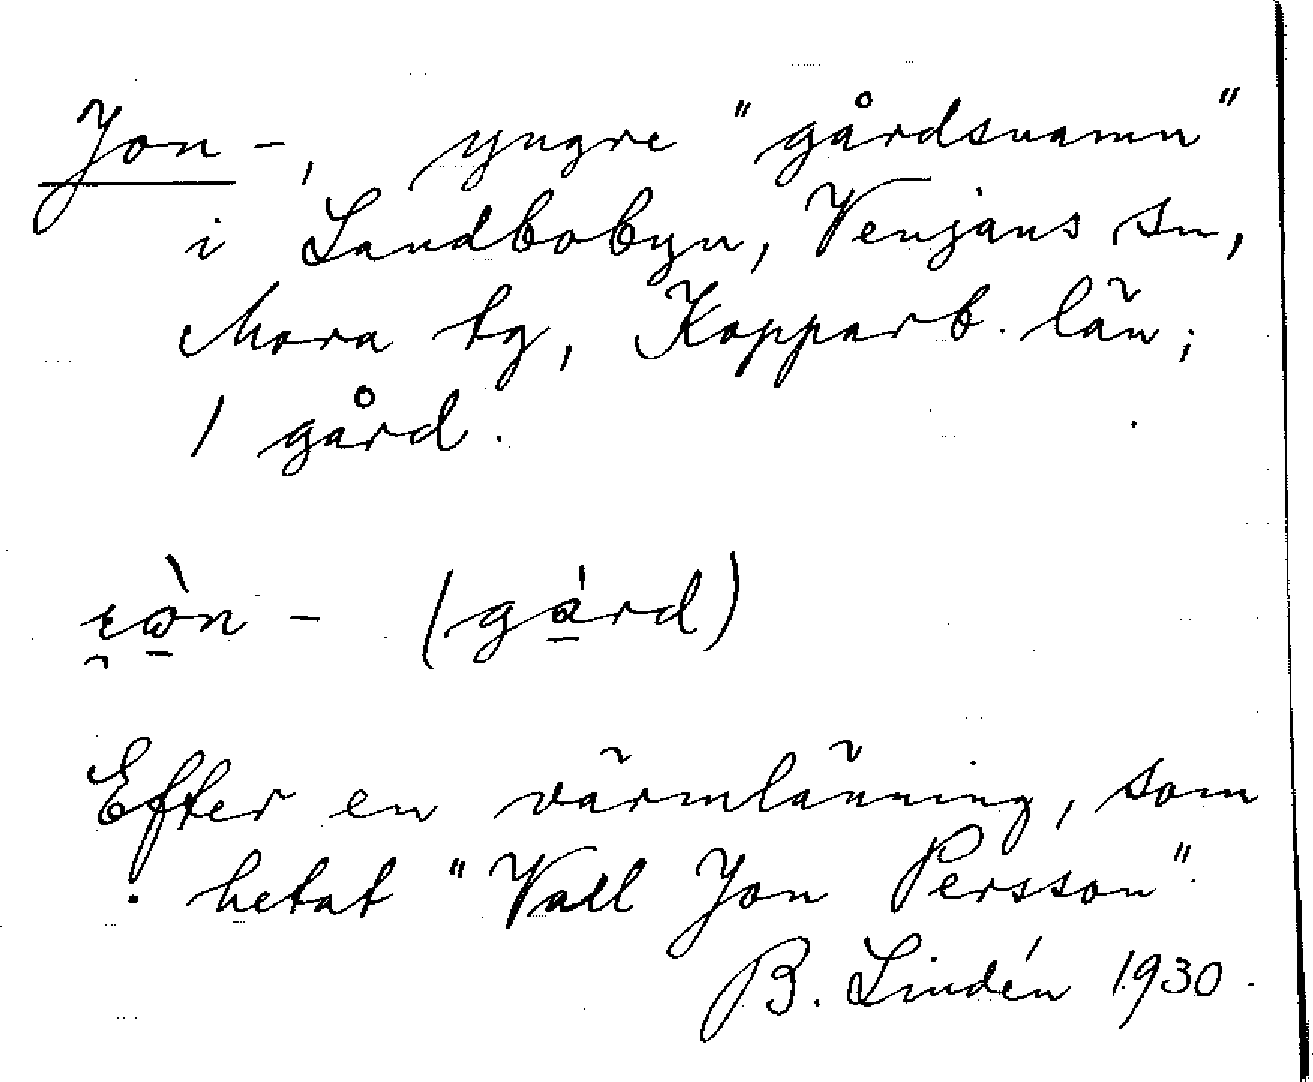 Jon-, yngre "gårdsnamn"
i Landbobyn, Venjans sn,
Mora tg, Kopparb. län;
1 gård.
- (gård)
Efter en värmlänning, som
hetat "Vall Jon Persson".
B. Lindén 1930.